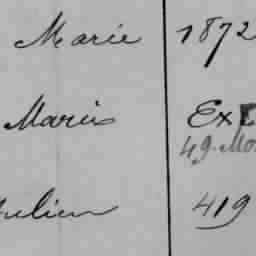 Marie 1872
Marius Ex
49. Mo
Julien 419